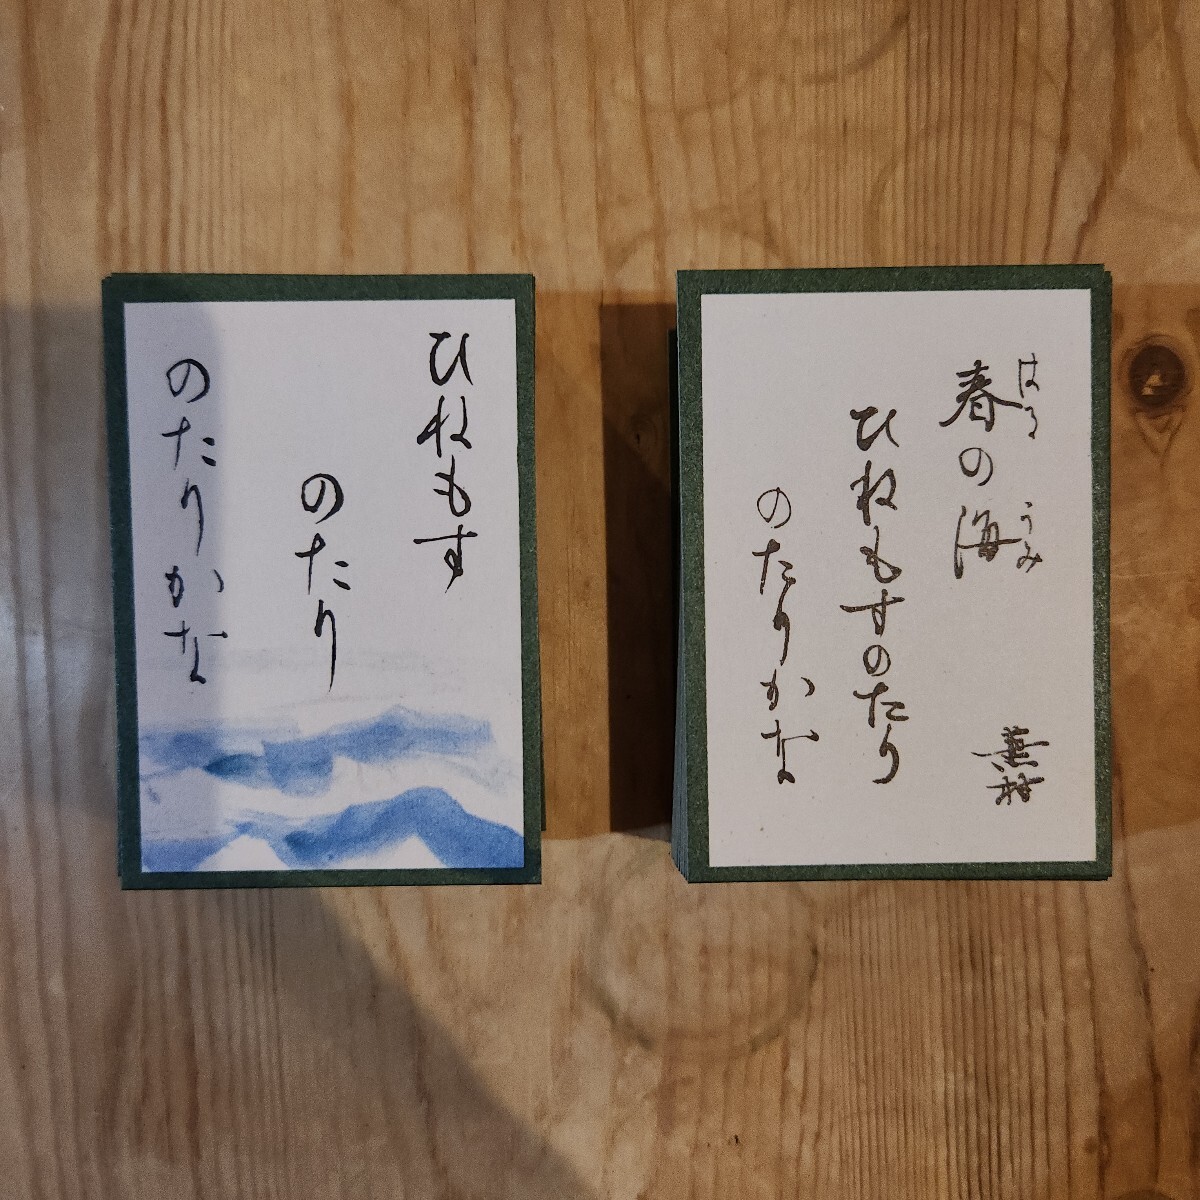 春の海
はる
うみ
ひねもすのたり
のたりかな
蕪村
ひねもす
のたり
のたりかな